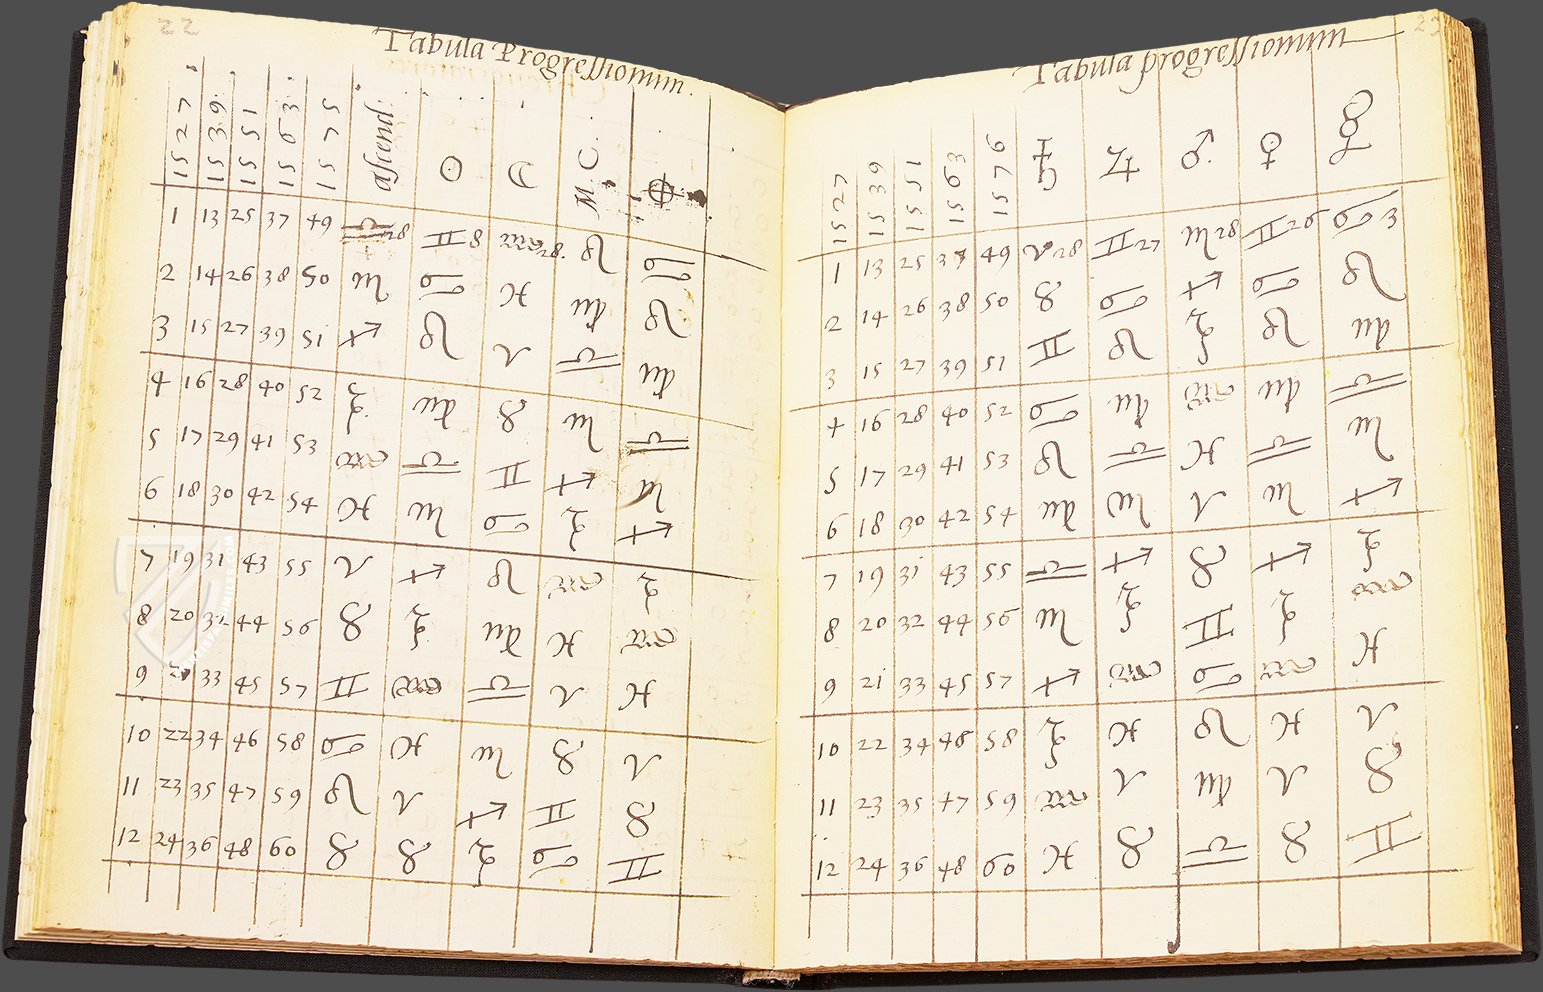 22
Tabula Progressionum.
1527 1539. 1551 1563 1575 ascend: ☉ ☽ M.C. ⊕
1 13 25 37 49 ♎28 ♊8 ♒28. ♌ ♋
2 14 26 38 50 ♏ ♋ ♓ ♍ ♌
3 15 27 39 51 ♐ ♌ ♈ ♎ ♍
4 16 28 40 52 ♑ ♍ ♉ ♏ ♎
5 17 29 41 53 ♒ ♎ ♊ ♐ ♏
6 18 30 42 54 ♓ ♏ ♋ ♑ ♐
7 19 31 43 55 ♈ ♐ ♌ ♒ ♑
8 20 32 44 56 ♉ ♑ ♍ ♓ ♒
9 33 45 57 ♊ ♒ ♎ ♈ ♓
10 22 34 46 58 ♋ ♓ ♏ ♉ ♈
11 23 35 47 59 ♌ ♈ ♐ ♊ ♉
12 24 36 48 60 ♉ ♉ ♑ ♋ ♊
23
Tabula progressionum
1527 1539 1551 1563 1576 ♄ ♃ ♂ ♀ ☿
1 13 25 37 49 ♈28 ♊27 ♏28 ♊26 ♋3
2 14 26 38 50 ♉ ♋ ♐ ♋ ♌
3 15 27 39 51 ♊ ♌ ♑ ♌ ♍
4 16 28 40 52 ♋ ♍ ♒ ♍ ♎
5 17 29 41 53 ♌ ♎ ♓ ♎ ♏
6 18 30 42 54 ♍ ♏ ♈ ♏ ♐
7 19 31 43 55 ♎ ♐ ♉ ♐ ♑
8 20 32 44 56 ♏ ♑ ♊ ♑ ♒
9 21 33 45 57 ♐ ♒ ♋ ♒ ♓
10 22 34 46 58 ♑ ♓ ♌ ♓ ♈
11 23 35 47 59 ♒ ♈ ♍ ♈ ♉
12 24 36 48 60 ♓ ♉ ♎ ♉ ♊